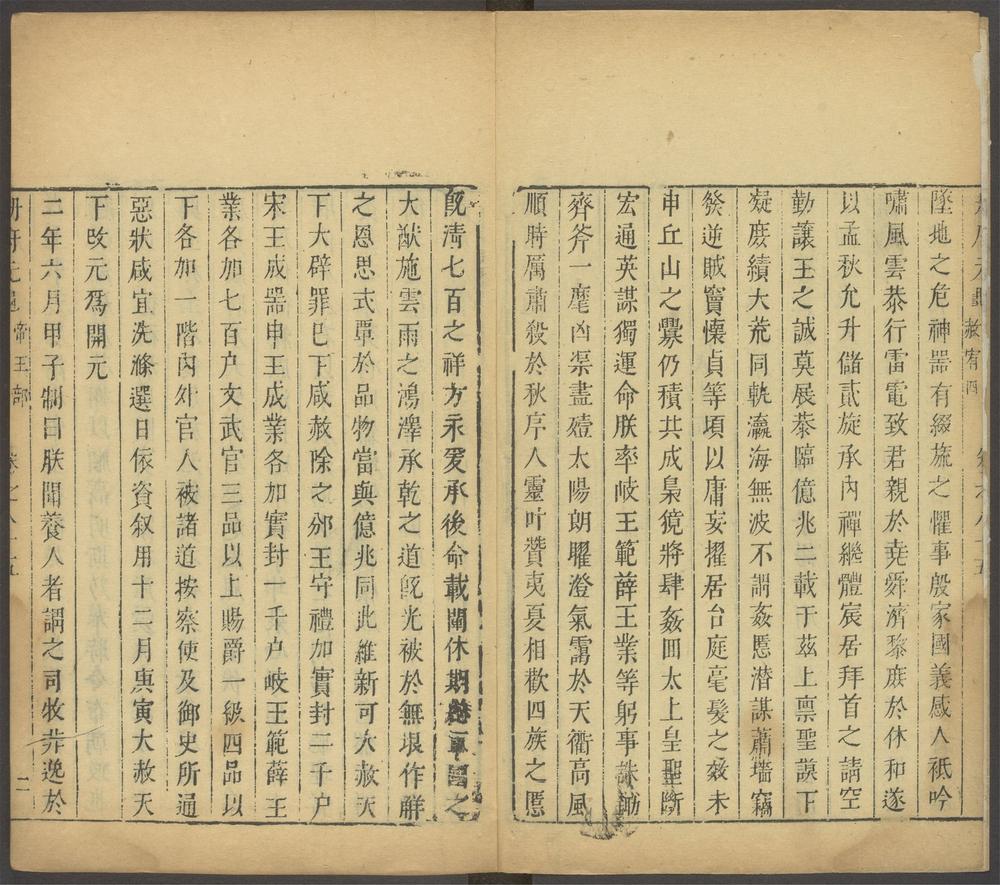 赦宥四
墜地之危神器有綴旒之懼事殷家國義感人祇吟
嘯風雲恭行雷電致君親於堯舜濟黎庶於休和遂
以孟秋允升儲貳旋承內禪繼體宸居拜首之請空
勤讓王之誠莫展恭臨億兆二載于茲上禀聖謨下
凝庶績大荒同軌瀛海無波不謂姦慝潛謀蕭墻竊
發逆賊竇懷貞等頃以庸妄擢居台庭毫髮之效未
申丘山之釁仍積共成梟獍將肆姦回太上皇聖斷
宏通英謀獨運命朕率岐王範薛王業等躬事誅鋤
齊斧一麾凶渠盡殪太陽朗曜澄氣靄於天衢高風
順時厲肅殺於秋序人靈叶贊夷夏相歡四族之慝
旣清七百之祥方永爰承後命載闡休期總軍國之
大猷施雲雨之鴻澤承乾之道旣光被於無垠作解
之恩思式覃於品物當與億兆同此維新可大赦天
下大辟罪已下咸赦除之邠王守禮加實封二千戶
宋王成器申王成業各加實封一千戶岐王範薛王
業各加七百戶文武官三品以上賜爵一級四品以
下各加一階內外官人被諸道按察使及御史所通
惡狀咸宜洗滌選日依資叙用十二月庚寅大赦天
下改元爲開元
二年六月甲子制曰朕聞養人者謂之司牧非逸於
冊府元龜 帝王部 卷之八十五 二